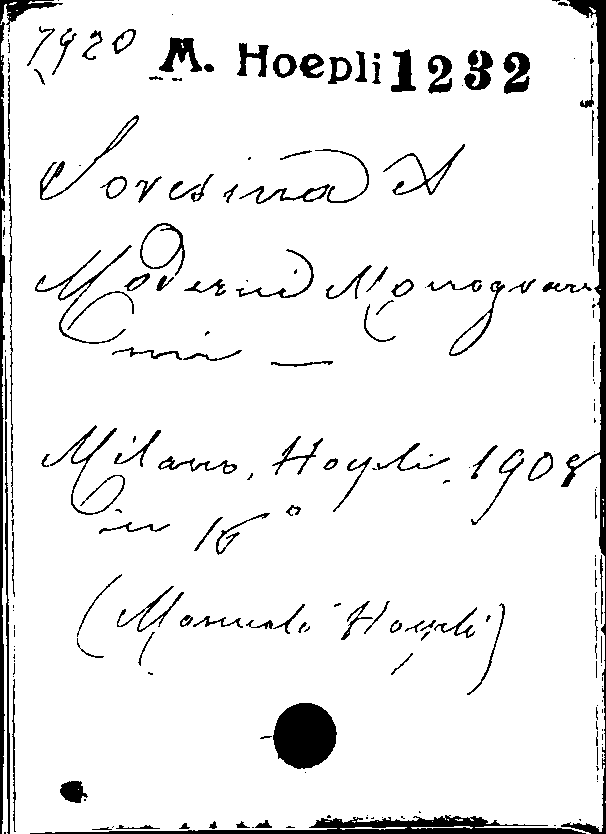 7920 M. Hoepli 1232
Soresina A
Moderni Monogram
mi —
Milano, Hoepli. 1908
in 16°
(Manuali Hoepli)